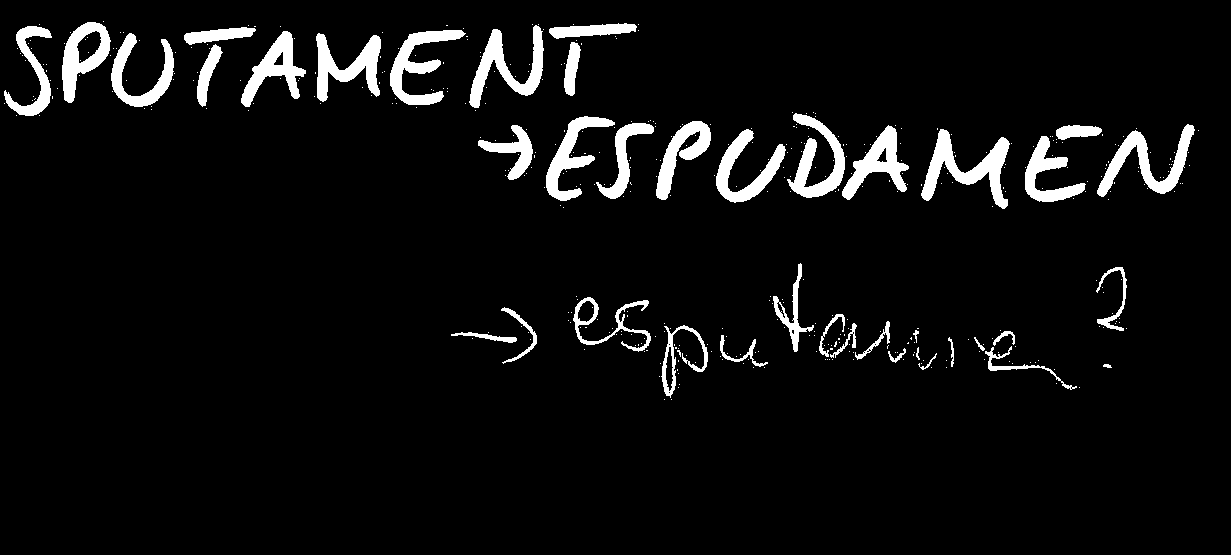 SPUTAMENT
→ ESPUDAMEN
→ esputamen?